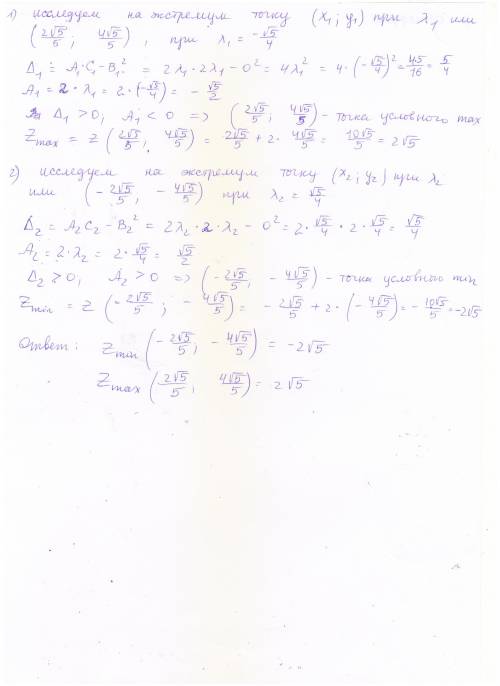 1) исследуем на экстремум точку (x₁; y₁) при λ₁ или
(2√5/5; 4√5/5), при λ₁ = -√5/4
Δ₁ = A₁·C₁ - B₁² = 2λ₁·2λ₁ - 0² = 4λ₁² = 4·(-√5/4)² = 4·5/16 = 5/4
A₁ = 2·λ₁ = 2·(-√5/4) = -√5/2
Δ₁ > 0, A₁ < 0 => (2√5/5; 4√5/5) - точка условного max
Zmax = z(2√5/5; 4√5/5) = 2√5/5 + 2·4√5/5 = 10√5/5 = 2√5
2) исследуем на экстремум точку (x₂; y₂) при λ₂
или (-2√5/5; -4√5/5) при λ₂ = √5/4
Δ₂ = A₂C₂ - B₂² = 2λ₂·2·λ₂ - 0² = 2·√5/4·2·√5/4 = √5/4
A₂ = 2·λ₂ = 2·√5/4 = √5/2
Δ₂ > 0, A₂ > 0 => (-2√5/5; -4√5/5) - точка условного min
Zmin = z(-2√5/5; -4√5/5) = -2√5/5 + 2·(-4√5/5) = -10√5/5 = -2√5
Ответ: Zmin(-2√5/5; -4√5/5) = -2√5
Zmax(2√5/5; 4√5/5) = 2√5